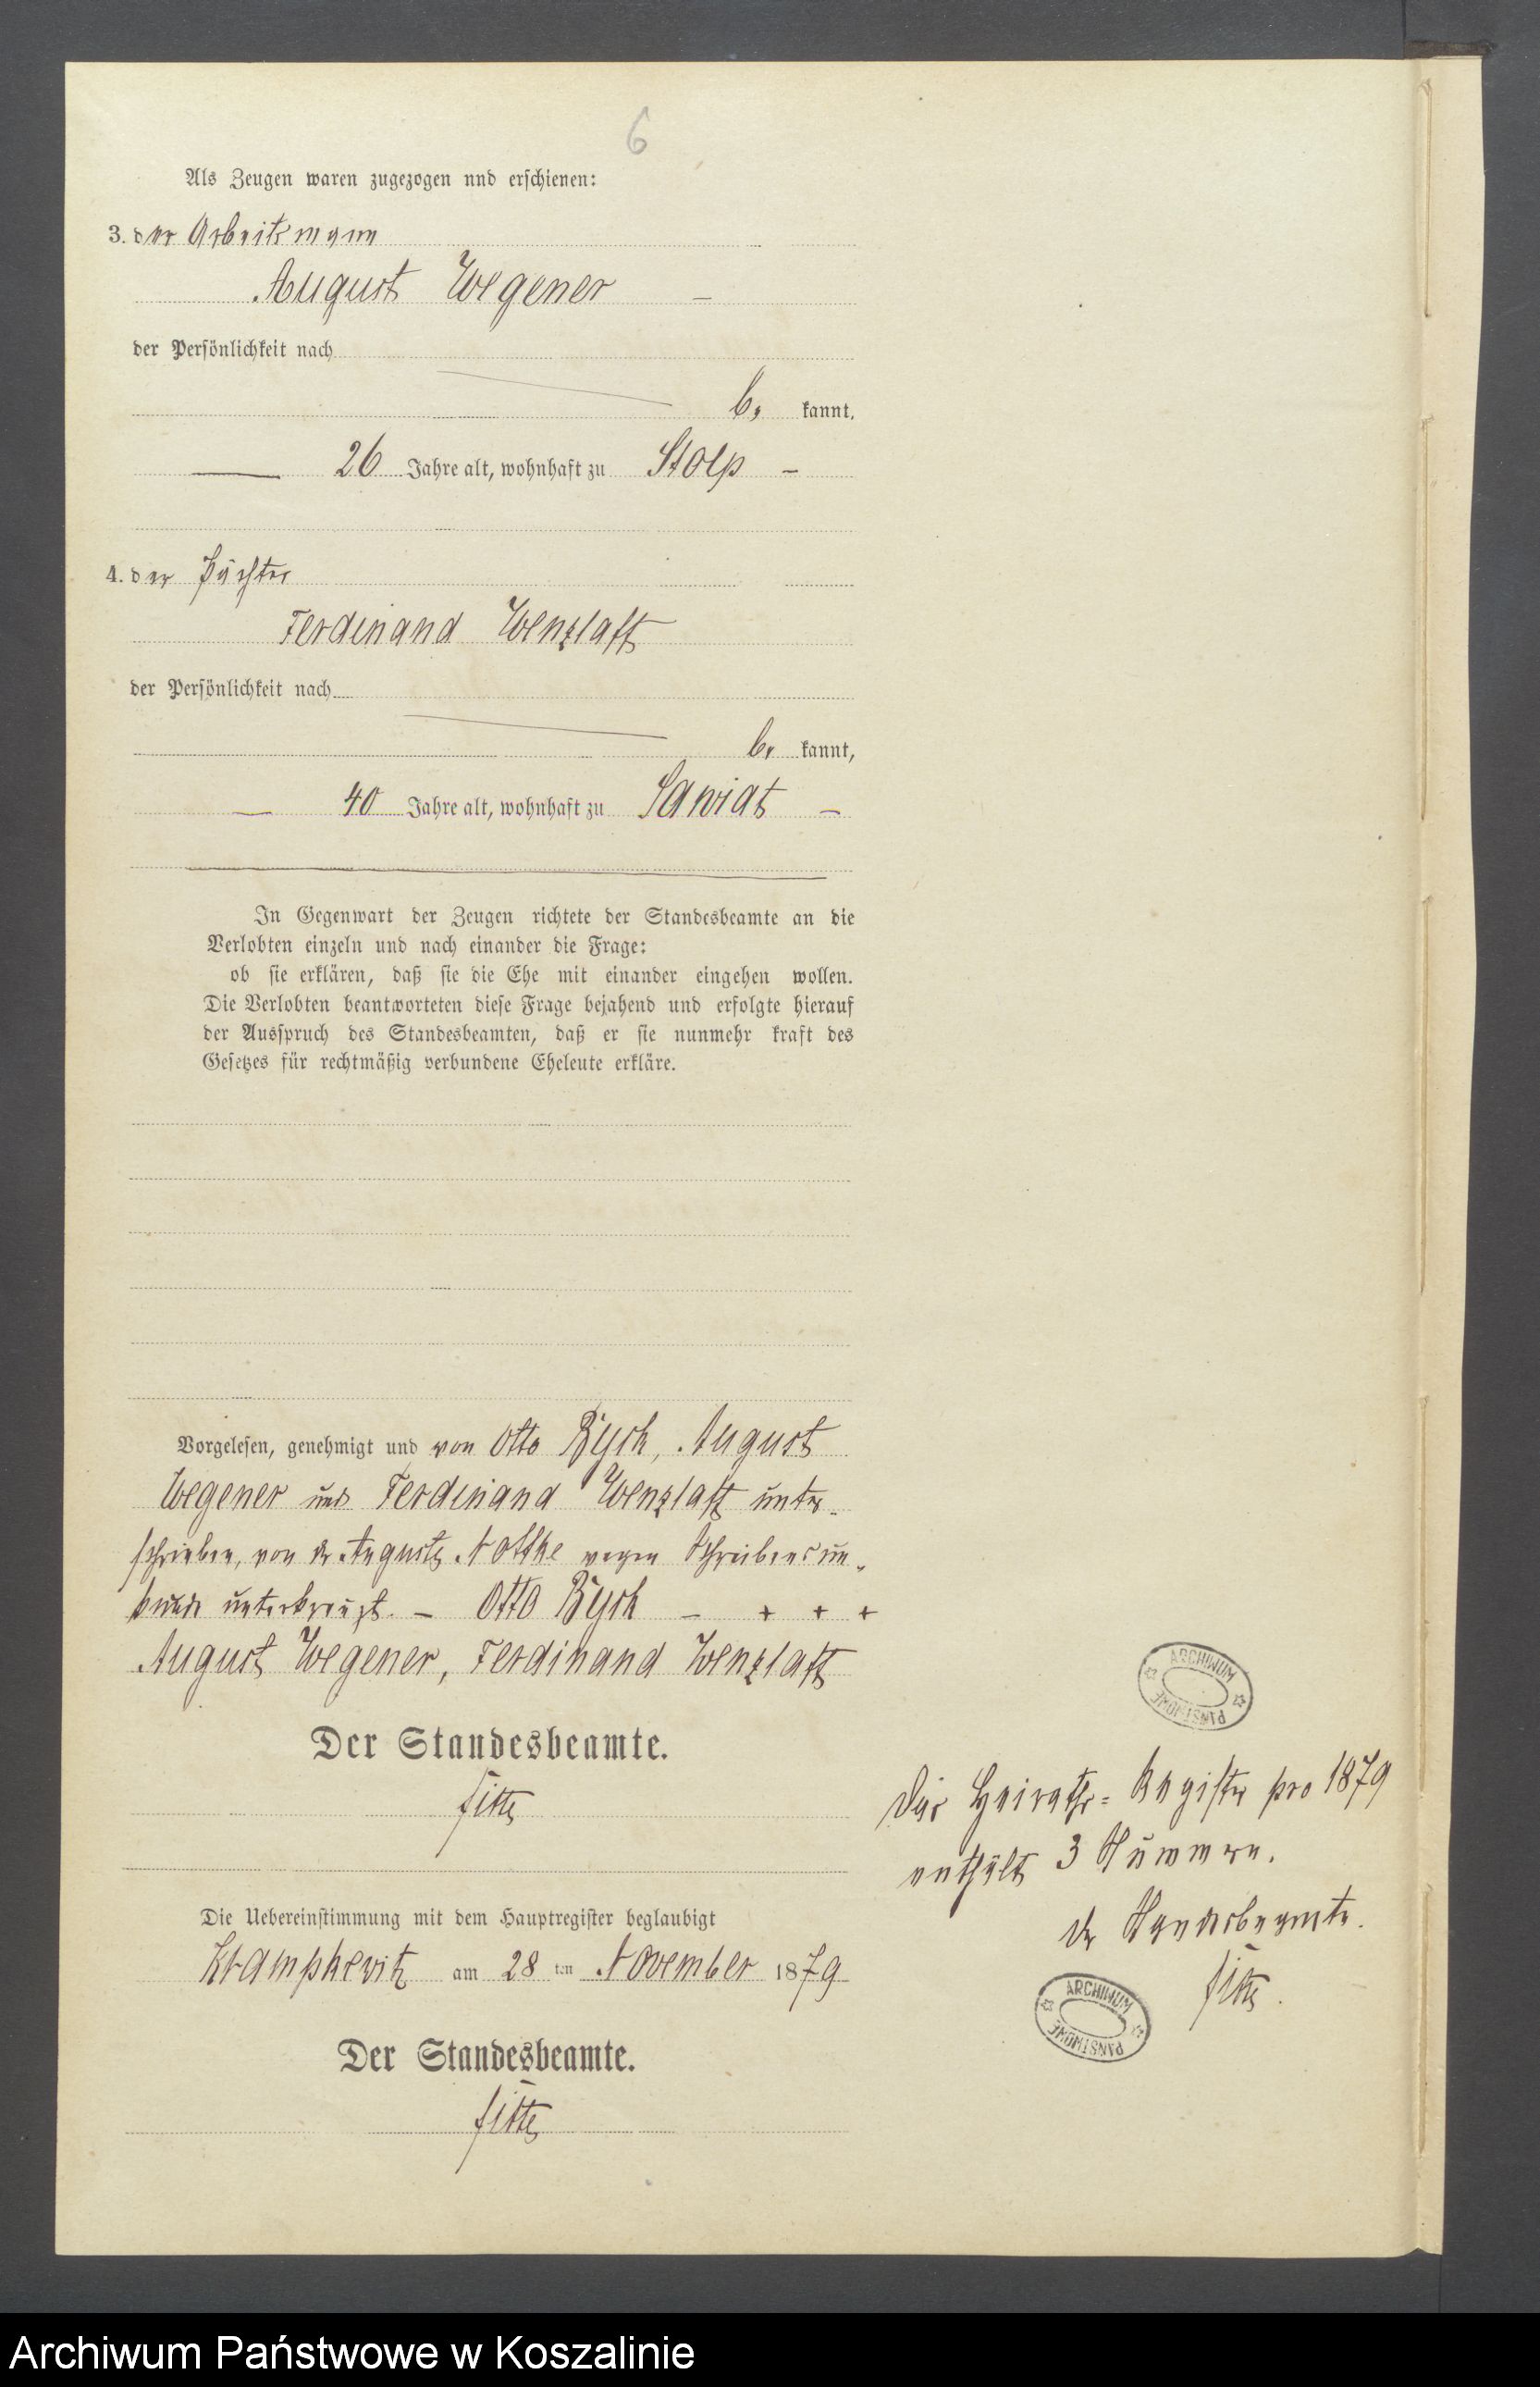 6
Als Zeugen waren zugezogen nnd erschienen:
3. der Arbeitsmann
August Wegener –
der Persönlichkeit nach
be kannt,
— 26 Jahre alt, wohnhaft zu Stolp –
4. der Pächter
Ferdinand Wenzlaff
der Persönlichkeit nach
be kannt,
— 40 Jahre alt, wohnhaft zu Sawiat –
In Gegenwart der Zeugen richtete der Standesbeamte an die
Verlobten einzeln und nach einander die Frage:
ob sie erklären, daß sie die Ehe mit einander eingehen wollen.
Die Verlobten beantworteten diese Frage bejahend und erfolgte hierauf
der Ausspruch des Standesbeamten, daß er sie nunmehr kraft des
Gesetzes für rechtmäßig verbundene Eheleute erkläre.
Vorgelesen, genehmigt und von Otto August
Wegener und Ferdinand Wenzlaff unter-
schrieben, von der Auguste Nofske wegen Schreibensun-
kunde unterkreuzt. – Otto – + + +
August Wegener, Ferdinand Wenzlaff
Der Standesbeamte.
Die Uebereinstimmung mit dem Hauptregister beglaubigt
Krampkewitz am 28 ten November 1879
Der Standesbeamte.
ARCHIWUM PAŃSTWOWE
Das Heiraths=Register pro 1879
enthält 3 Nummern.
der Standesbeamte.
ARCHIWUM PAŃSTWOWE
Archiwum Państwowe w Koszalinie